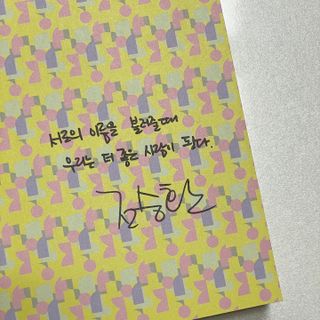 서로의 이름을 불러줄때
우리는 더 좋은 사람이 된다.
김승환